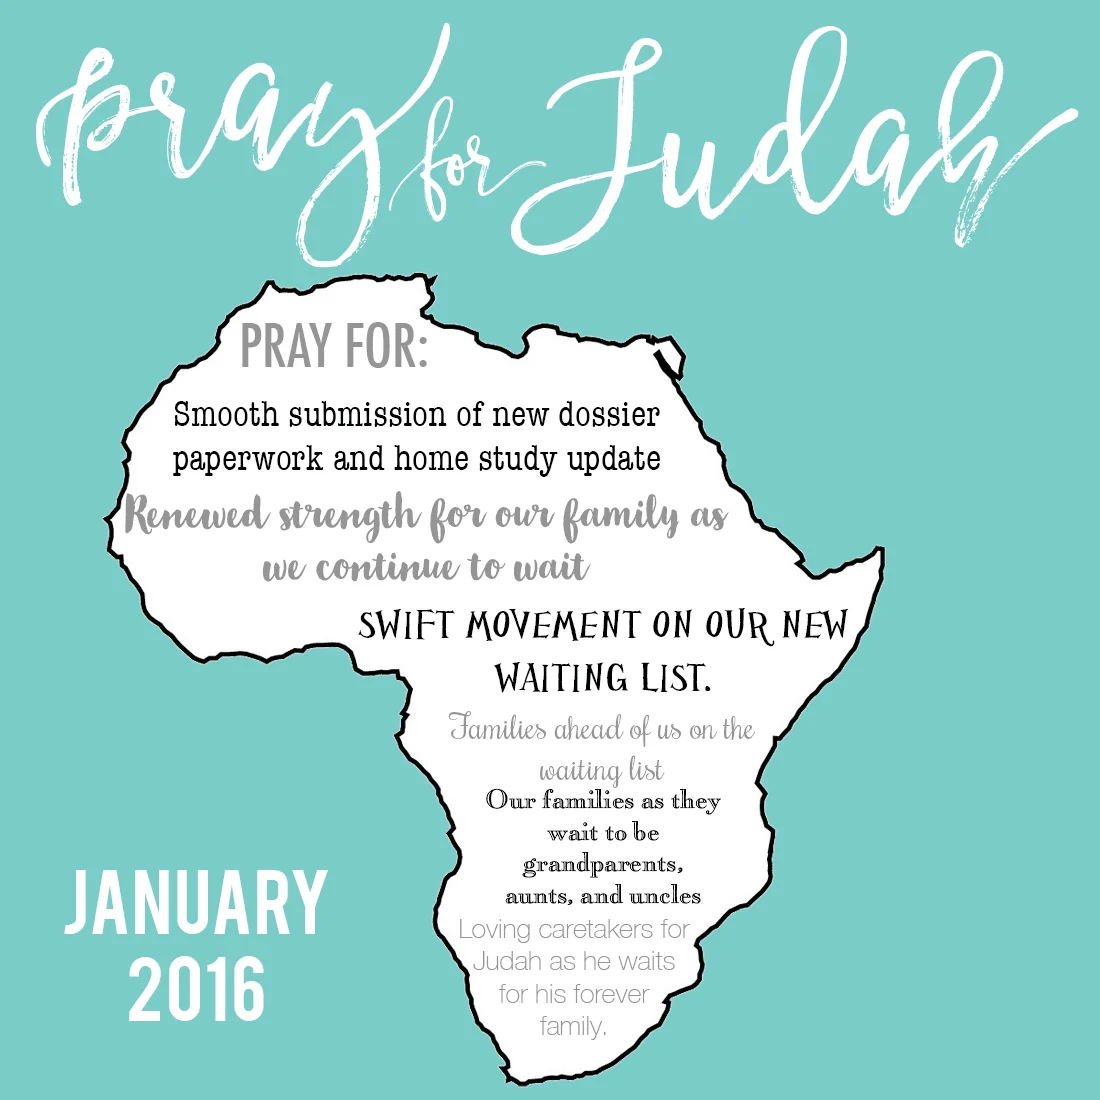 pray for Judah
PRAY FOR:
Smooth submission of new dossier
paperwork and home study update
Renewed strength for our family as
we continue to wait
SWIFT MOVEMENT ON OUR NEW
WAITING LIST.
Families ahead of us on the
waiting list
Our families as they
wait to be
grandparents,
aunts, and uncles
Loving caretakers for
Judah as he waits
for his forever
family.
JANUARY
2016